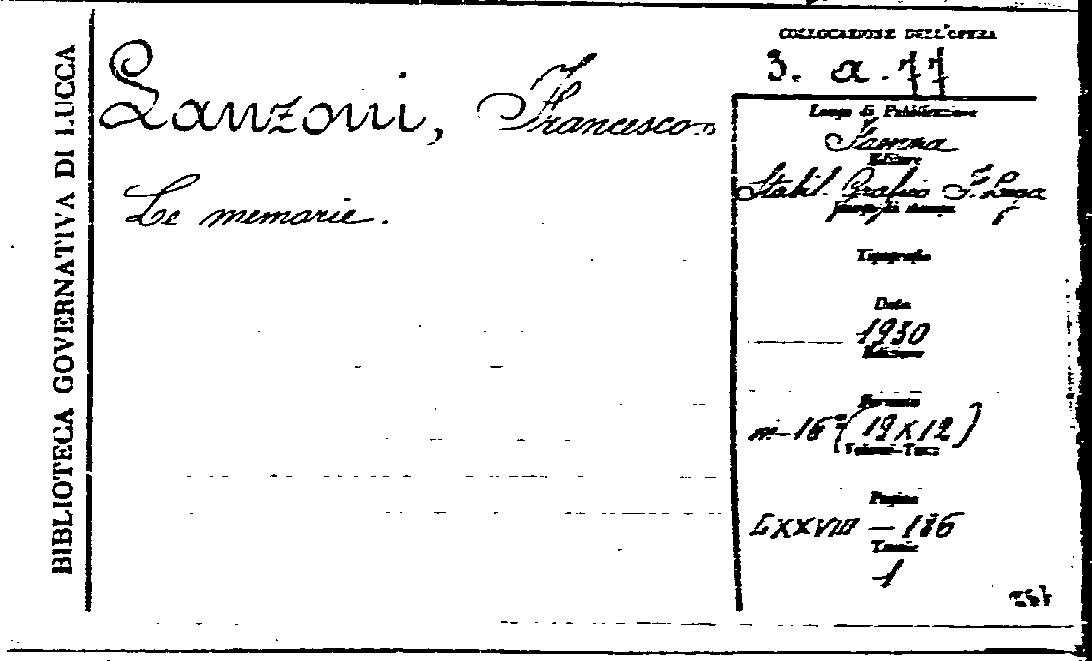 BIBLIOTECA GOVERNATIVA DI LUCCA
Lanzoni, Francesco.
Le memorie.
COLLOCAZIONE DELL'OPERA
3. a. 77
Luogo di Pubblicazione
Faenza
Editore
Stabil. Grafico F. Lega
Luogo di stampa
Tipografia
Data
1930
Edizione
Formato
in-16° (19X12)
Volumi-Tomi
Pagine
LXXVIII — 186
Tavole
1